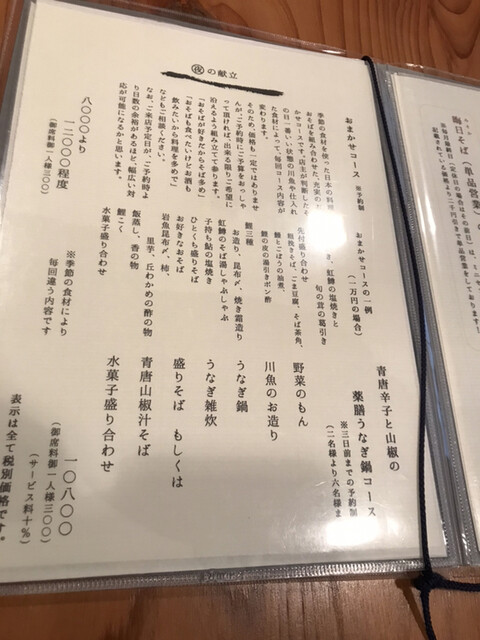 夜の献立
おまかせコース ※予約制
季節の食材を使った日本の料理
おそばを組み合わせた、充実の
かせコースです。店主が判断したそ
の日一番いい状態の川魚や仕入れ
た食材によって、毎回コース内容が
変わります。
そのため、価格も一定ではありませ
んが、ご予約時にご予算をおっしゃ
って頂ければ、出来る限りご希望に
沿えるよう組み立てて参ります。
「おそばが好きだからそば多め」
「おそばも食べたいけどお酒も
飲みたいから料理を多めで」
などもご相談ください。
なお、ご来店予定日が、ご予約時よ
り日数の余裕があるほど、幅広い対
応が可能になるかと思います。
八〇〇〇より
一二〇〇〇程度
(御席料御一人様三〇〇)
おまかせコースの一例
(一万円の場合)
き、虹鱒の塩焼きと
旬の茸の葛引き
先付盛り合わせ
粗挽きそば、ごま豆腐、そば茶角、
鯉とごぼうの油煮、
鯉の皮の湯引きポン酢
鯉三種
お造り、昆布〆、焼き霜造り
虹鱒のそば湯しゃぶしゃぶ
子持ち鮎の塩焼き
ひとくち盛りそば
お好きなおそば
岩魚昆布〆、柿、
里芋、丘わかめの酢の物
飯蒸し、香の物
鯉こく
水菓子盛り合わせ
※季節の食材により
毎回違う内容です
青唐辛子と山椒の
薬膳うなぎ鍋コース
※三日前までの予約制
(二名様より六名様ま
野菜のもん
川魚のお造り
うなぎ鍋
うなぎ雑炊
盛りそば もしくは
青唐山椒汁そば
水菓子盛り合わせ
一〇八〇〇
(御席料御一人様三〇〇)
(サービス料十%)
表示は全て税別価格です。
晦日そば(単品営業)の